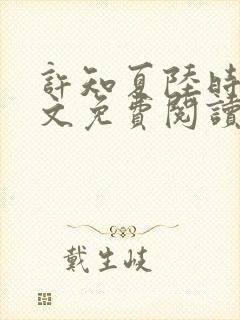 許知夏陸時
文免費閱讀
戴生岐